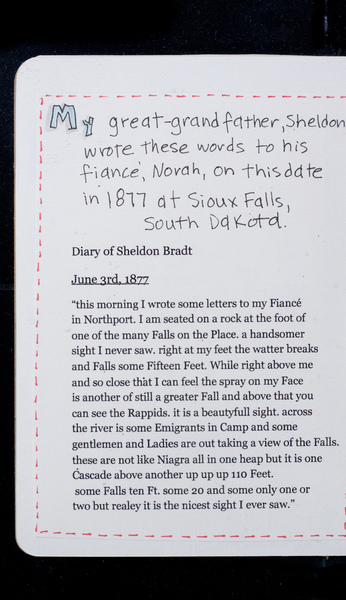 My great-grandfather, Sheldon
wrote these words to his
fiancé, Norah, on this date
in 1877 at Sioux Falls,
South Dakota.
Diary of Sheldon Bradt
June 3rd, 1877
“this morning I wrote some letters to my Fiancé
in Northport. I am seated on a rock at the foot of
one of the many Falls on the Place. a handsomer
sight I never saw. right at my feet the watter breaks
and Falls some Fifteen Feet. While right above me
and so close that I can feel the spray on my Face
is another of still a greater Fall and above that you
can see the Rappids. it is a beautyfull sight. across
the river is some Emigrants in Camp and some
gentlemen and Ladies are out taking a view of the Falls.
these are not like Niagra all in one heap but it is one
Cascade above another up up up 110 Feet.
some Falls ten Ft. some 20 and some only one or
two but realey it is the nicest sight I ever saw.”